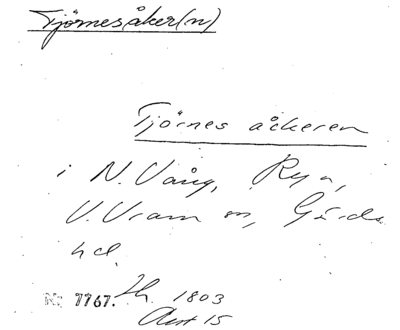 Tjörnesåker(n)
Tjörnes åckeren
i N. Vång, Ry n,
V. Vram sn, Gärds
hd.
Nr 7767. Jh. 1803
Akt 15